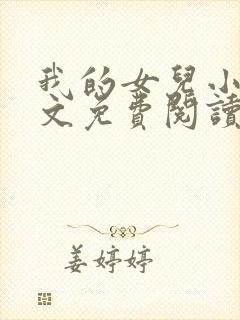 我的女兒小
文免費閱讀
姜婷婷